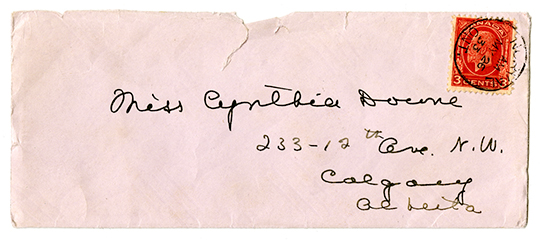 CANADA
3 CENTS 3
Miss Cynthia Downe
233-12th Ave. N.W.
Calgary
Alberta